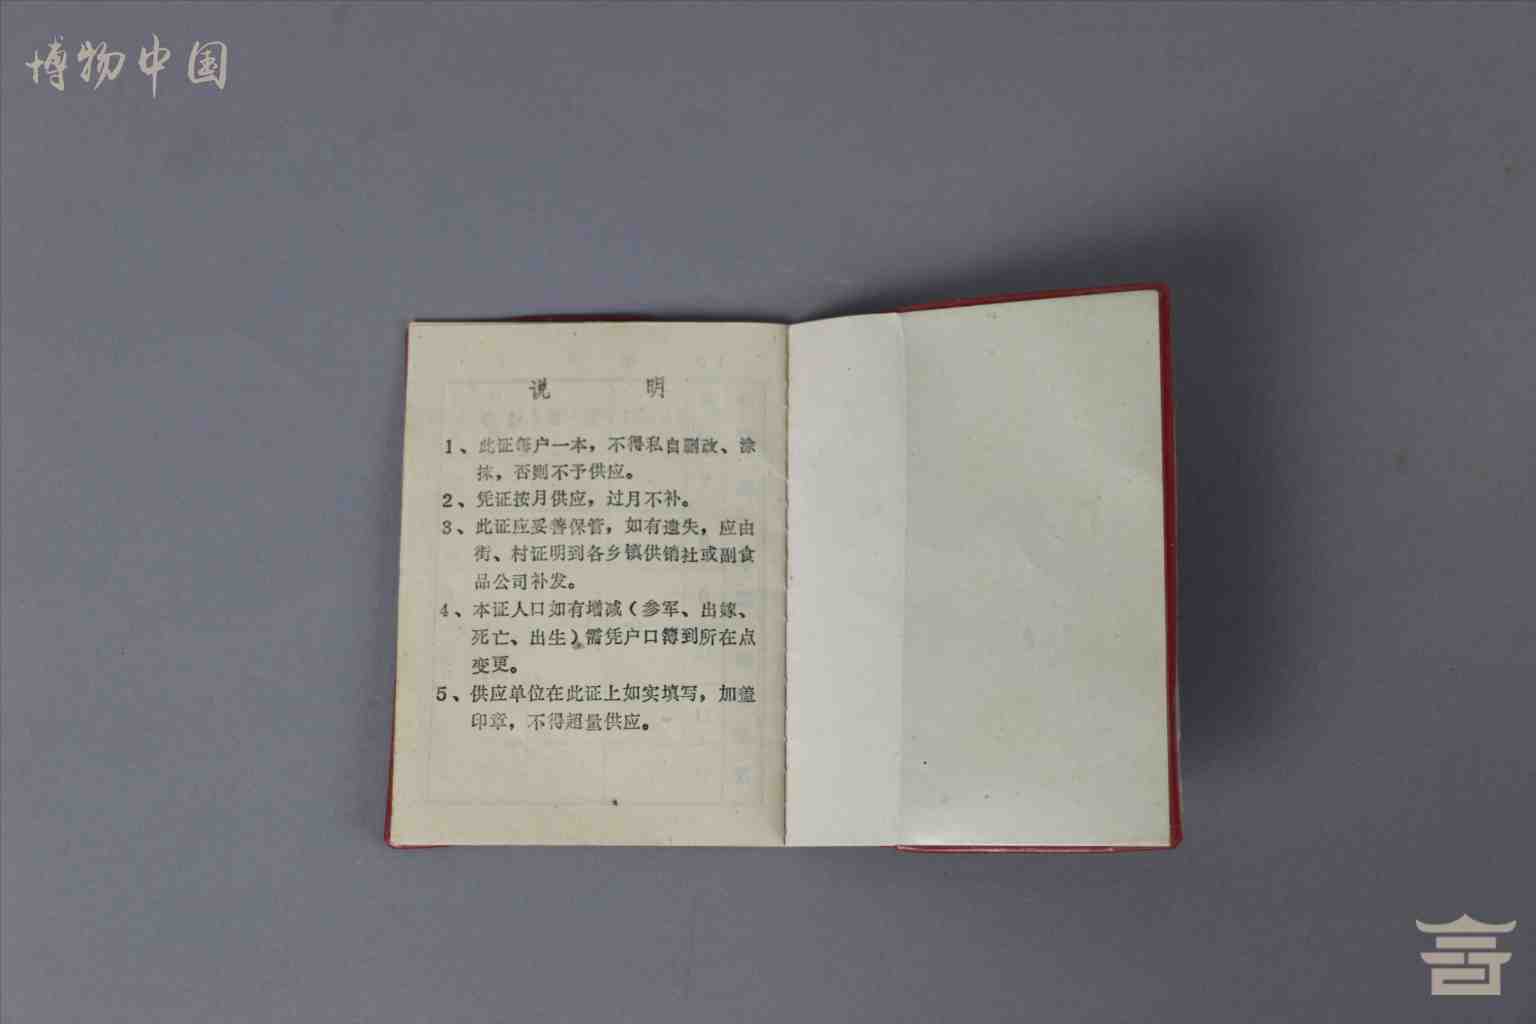 博物中国
说 明
1、此证每户一本，不得私自删改、涂
抹，否则不予供应。
2、凭证按月供应，过月不补。
3、此证应妥善保管，如有遗失，应由
街、村证明到各乡镇供销社或副食
品公司补发。
4、本证人口如有增减（参军、出嫁、
死亡、出生）需凭户口簿到所在点
变更。
5、供应单位在此证上如实填写，加盖
印章，不得超量供应。